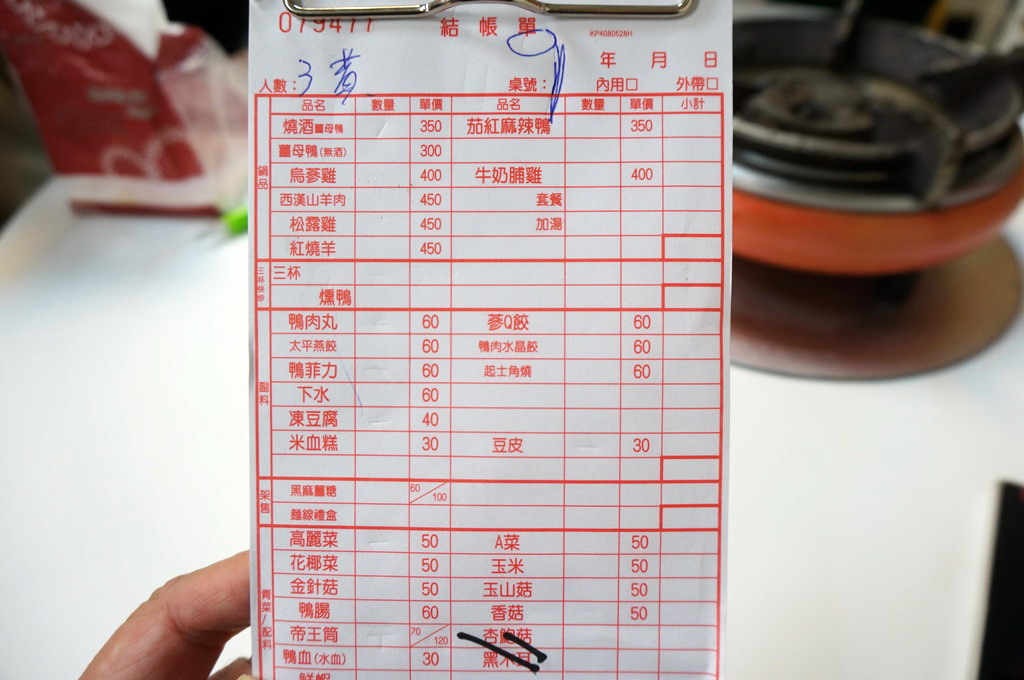 079477 結帳單 KP4080528H
年 月 日
人數：3 黃 桌號：9 內用□ 外帶□
品名 數量 單價 品名 數量 單價 小計
鍋品
燒酒薑母鴨 350 茄紅麻辣鴨 350
薑母鴨(無酒) 300
烏蔘雞 400 牛奶脯雞 400
西漢山羊肉 450 套餐
松露雞 450 加湯
紅燒羊 450
三杯
燻鴨
副料
鴨肉丸 60 蔘Q餃 60
太平燕餃 60 鴨肉水晶餃 60
鴨菲力 60 起士角燒 60
下水 60
凍豆腐 40
米血糕 30 豆皮 30
架售
黑麻薑糖 60/100
麵線禮盒
青菜/配料
高麗菜 50 A菜 50
花椰菜 50 玉米 50
金針菇 50 玉山菇 50
鴨腸 60 香菇 50
帝王筒 70/120 杏鮑菇
鴨血(水血) 30 黑木耳
鮮蝦